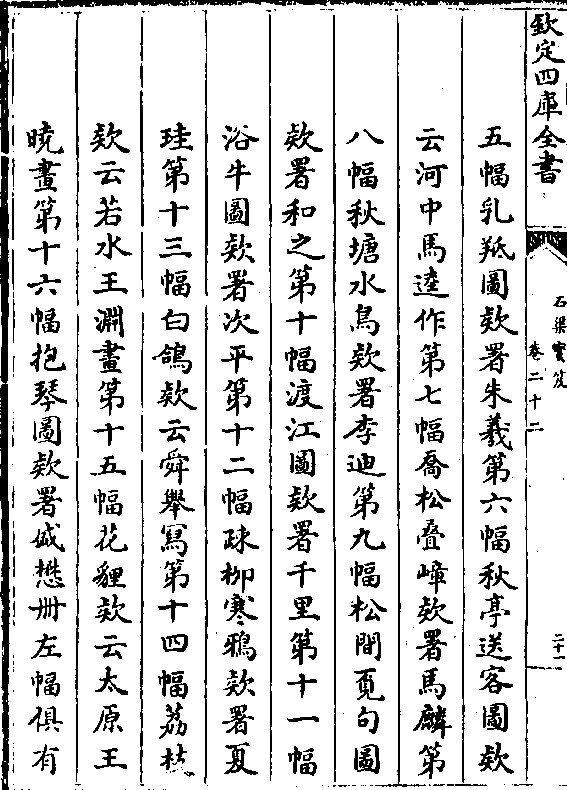 欽定四庫全書
石渠寶笈
卷二十二
二十一
五幅乳羝圖欵署朱羲第六幅秋亭送客圖欵
云河中馬逵作第七幅喬松疊嶂欵署馬麟第
八幅秋塘水鳥欵署李迪第九幅松間覓句圖
欵署和之第十幅渡江圖欵署千里第十一幅
浴牛圖欵署次平第十二幅疎柳寒鴉欵署夏
珪第十三幅白鴿欵云舜舉寫第十四幅荔枝
欵云若水王淵畫第十五幅花貍欵云太原王
曉畫第十六幅抱琴圖欵署戚懋冊左幅俱有